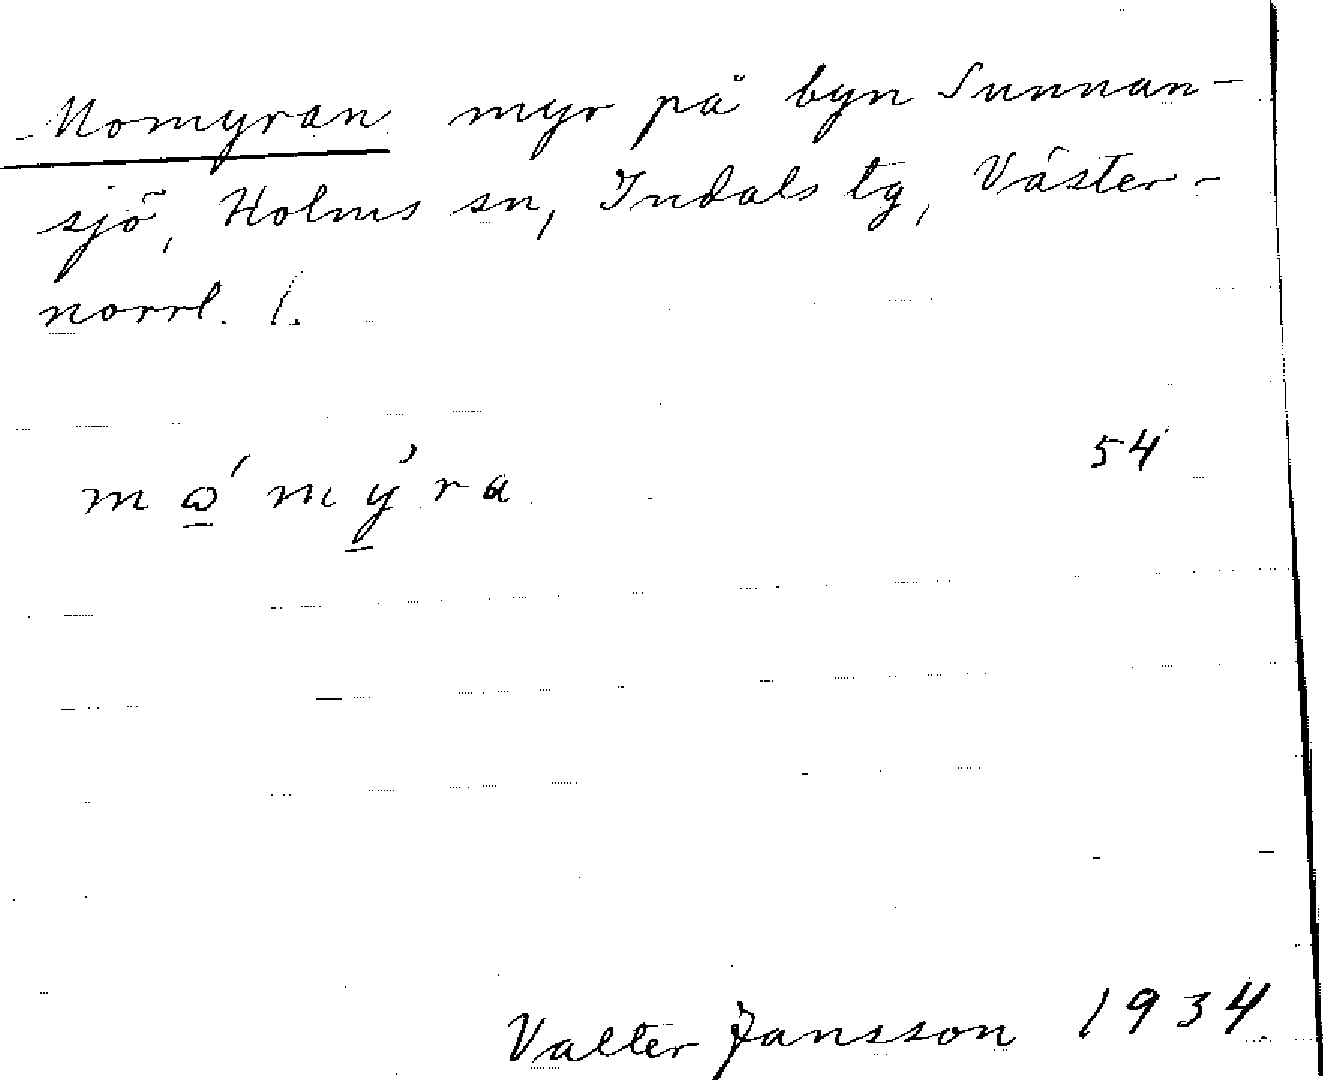 Momyran myr på byn Sunnan-
sjö, Holms sn, Indals tg, Väster-
norrl. l.
mꞷ́mýra
54
Valter Jansson 1934